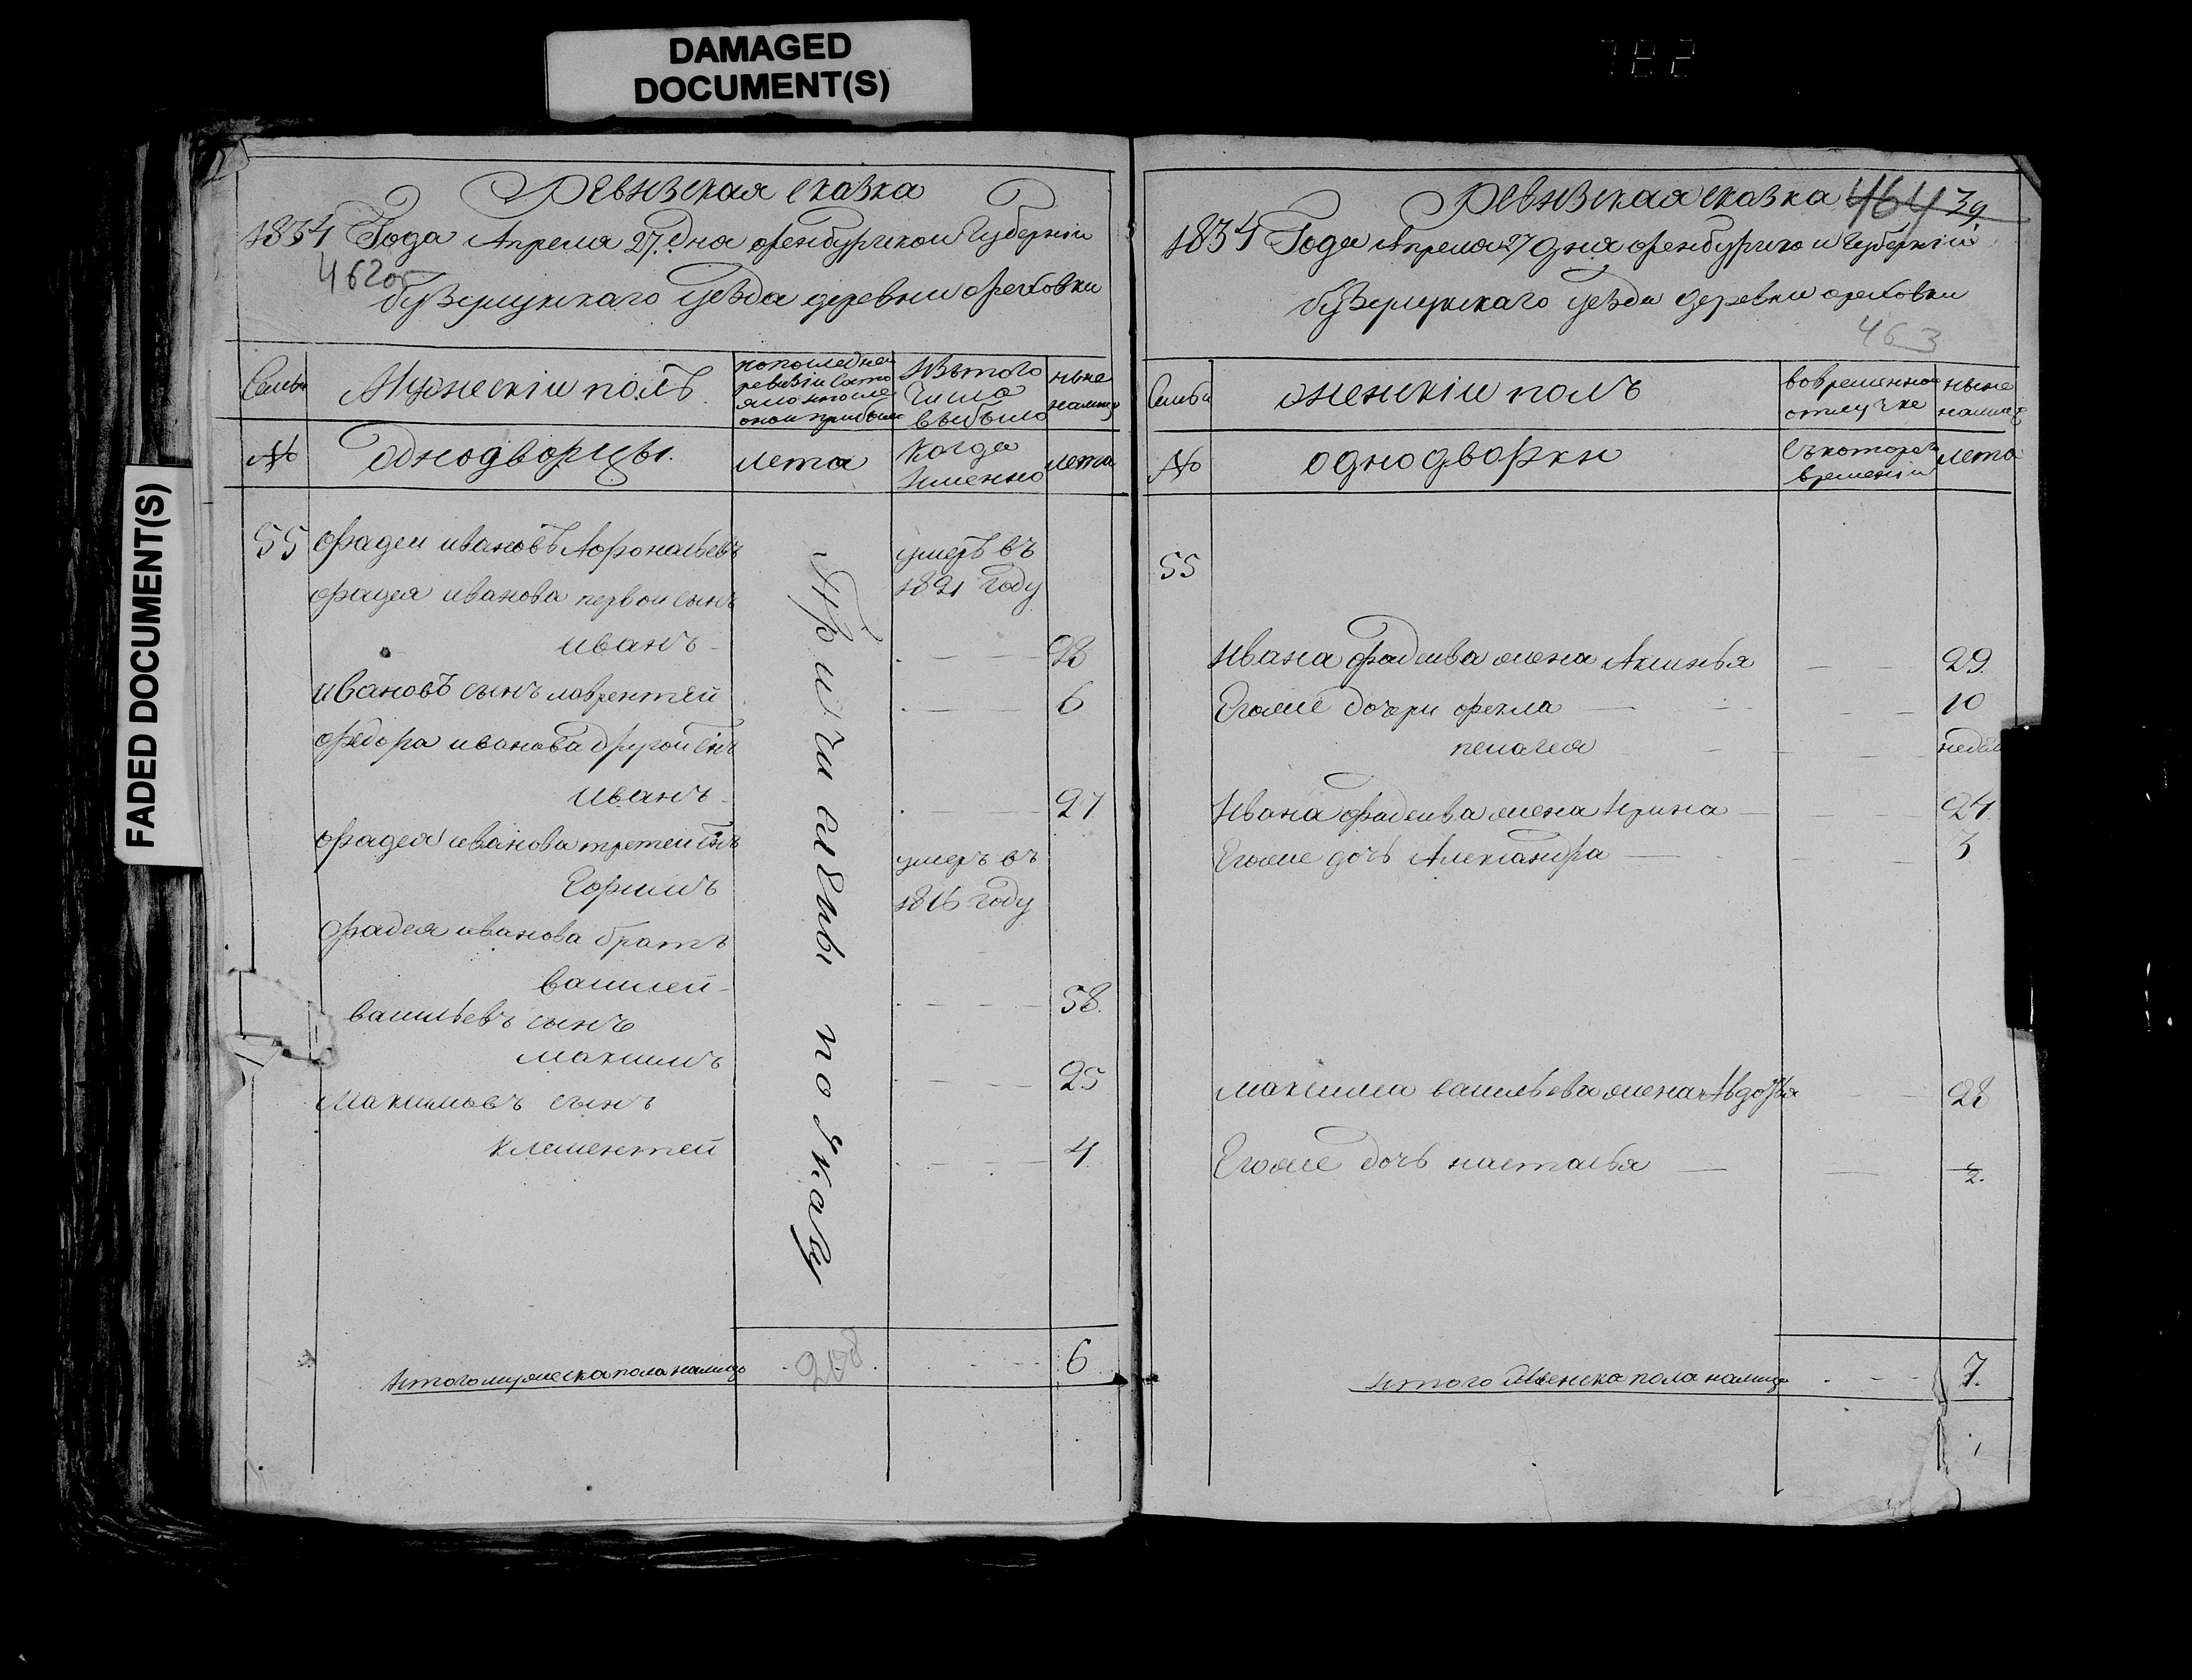 DAMAGED
DOCUMENT(S)
FADED DOCUMENT(S)
Ревизская сказка
1834 Года Апреля 27. дня оренбургской Губернии
462об
бузулукскаго уезда деревни ореховки
Семьи
Мужескiи полъ
по последней
ревизiи состо
яло и после
оной прибыло
Изътого
Числа
выбыло
ныне
налицо
№
Однодворцы.
лета
Когда
Именно
лета
55 Фадеи ивановъ Афонасьевъ
умеръ въ
1821 году
фадея иванова первои сынъ
иванъ
28
ивановъ сынъ лаврентей
6
федора иванова другои снъ
иванъ
27
фадея иванова третеи снъ
Ефимъ
умеръ въ
1816 году
фадея иванова братъ
василеи
58.
васильевъ сынъ
максимъ
25
Максимовъ сынъ
клементей
4.
Причислены по указу
208
Итого мужеска пола налицо
6
Ревизская сказка 464 39
1834 Года Апреля 27 дня оренбургскои Губернiи
бузулукскаго уезда деревни ореховки
463
Семьи
женскiи полъ
вовременной
отлучке
ныне
налицо
№
однодворки
Съкотораго
времени
лета
55
Ивана фадеива жена Аксинья
29.
Егоже дочери фекла
10
пелагея
недель
Ивана фадеива жена Ирина
24.
Егоже дочь Александра
3
максима васильева жена Авдотья
28
Егоже дочь настасья
2.
Итого женска пола налицо
7.